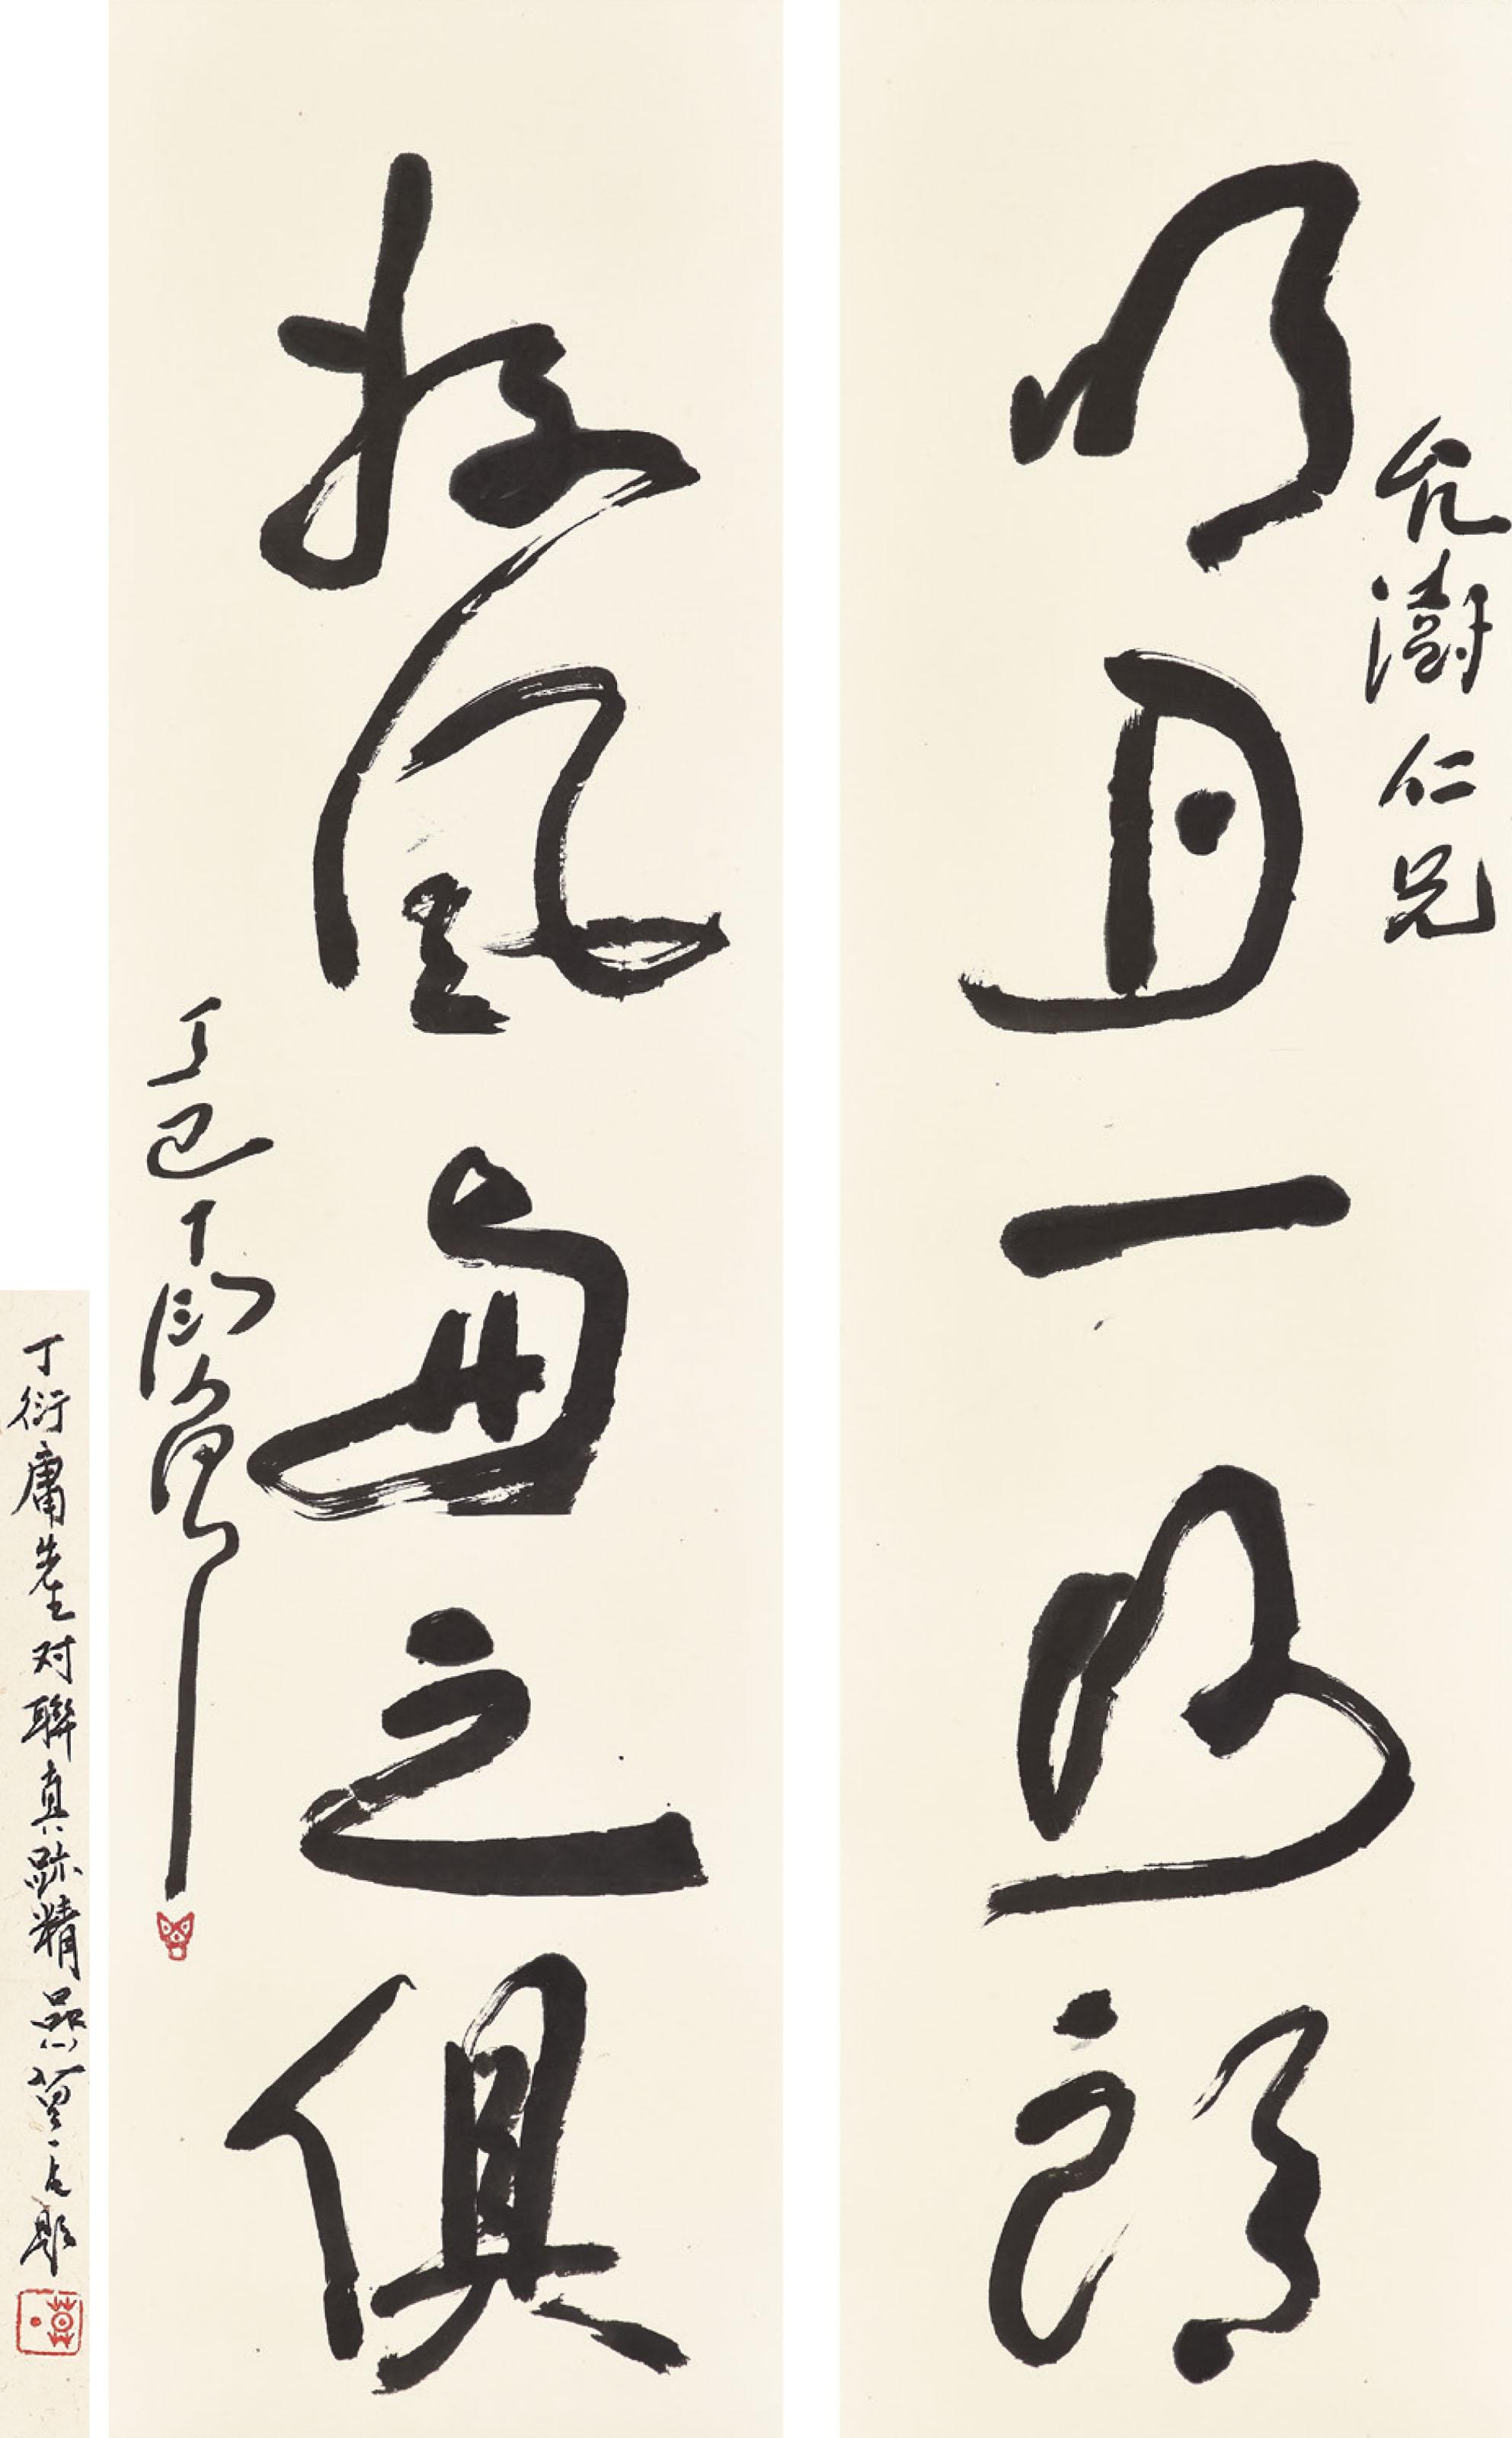 允澍仁兄
明月一照朗
好風與之俱
丁巳丁衍庸
丁衍庸先生对聯真跡精品